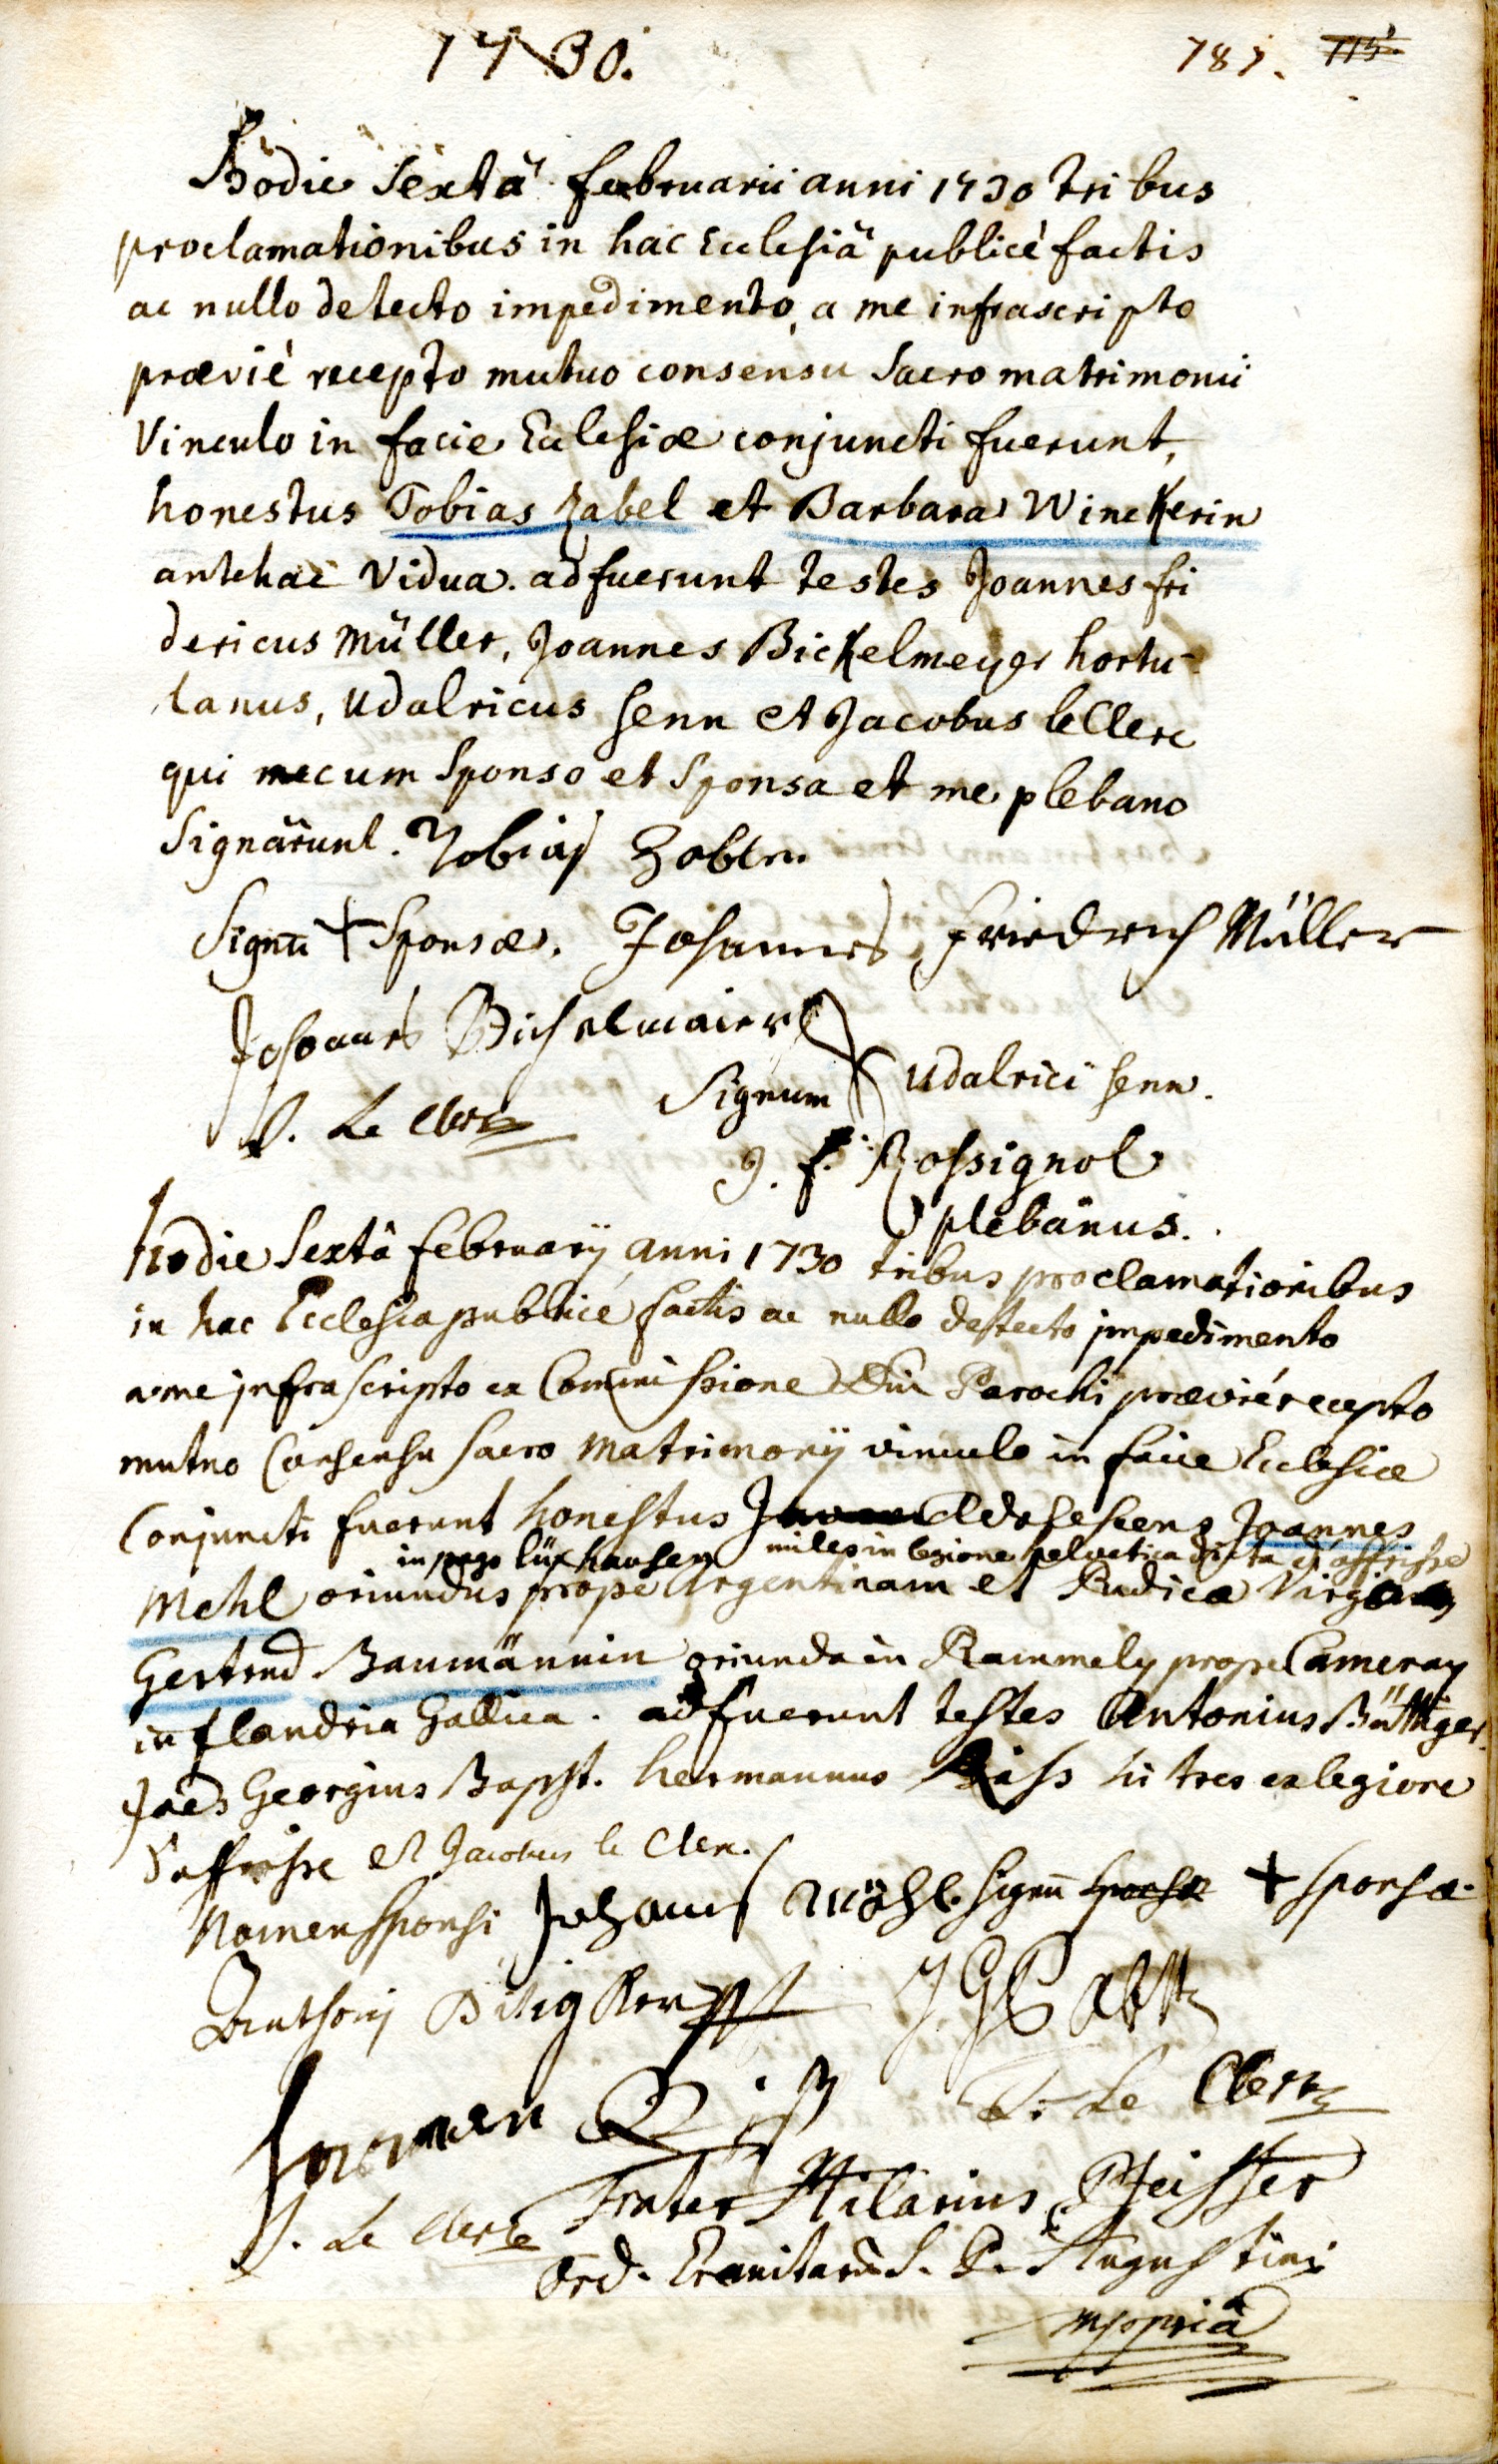 1730.
787. 115
Hodie sextâ februarii anni 1730 tribus
proclamationibus in hac Ecclesiâ publicè factis
ac nullo detecto impedimento, a me infrascripto
praeviè recepto mutuo consensu Sacro matrimonii
Vinculo in facie Ecclesiae conjuncti fuerunt,
honestus Tobias Zabel et Barbara Winckerin
antehac Vidua. adfuerunt testes Joannes fri
dericus Müller, Joannes Bickelmeyer hortu-
lanus, Udalricus Senn et Jacobus leClerc
qui mecum Sponso et Sponsa et me plebano
Signârunt. Tobias
Signū + Sponsae. Johannes Friedrich Müller
Johannes
Signum Udalrici Senn.
J. Le Clerc
J. f. Rossignol
plebanus.
Hodie Sextâ februarij anni 1730 tribus proclamationibus
in hac Ecclesia publicé factis ac nullo detecto impedimento
a me infrascripto ex Commissione Dni Parochi praevié recepto
mutuo Consensu sacro Matrimonij vinculo in facie Ecclesiae
Conjuncti fuerunt honestus Adolescens Joannes
in pago miles in legione helvetica dicta d'affrisse
Mehl oriundus prope Argentinam et Pudica Virgo
Gertrud Baumännin oriunda in Rammely prope Cameray
in flandria Gallica. adfuerunt testes Antonius Büttiger
Jões Georgius Bapst. hermannus hi tres ex legione
d'affrisse et Jacobus le Clerc.
Nomen sponsi Johans Möhl. signū sponsae + sponsae.
J. Le Clerc
Frater Hilarius Pfeiffer
J. Le Clerc
Ord. Eremitarū S. P. Augustini
mppriâ